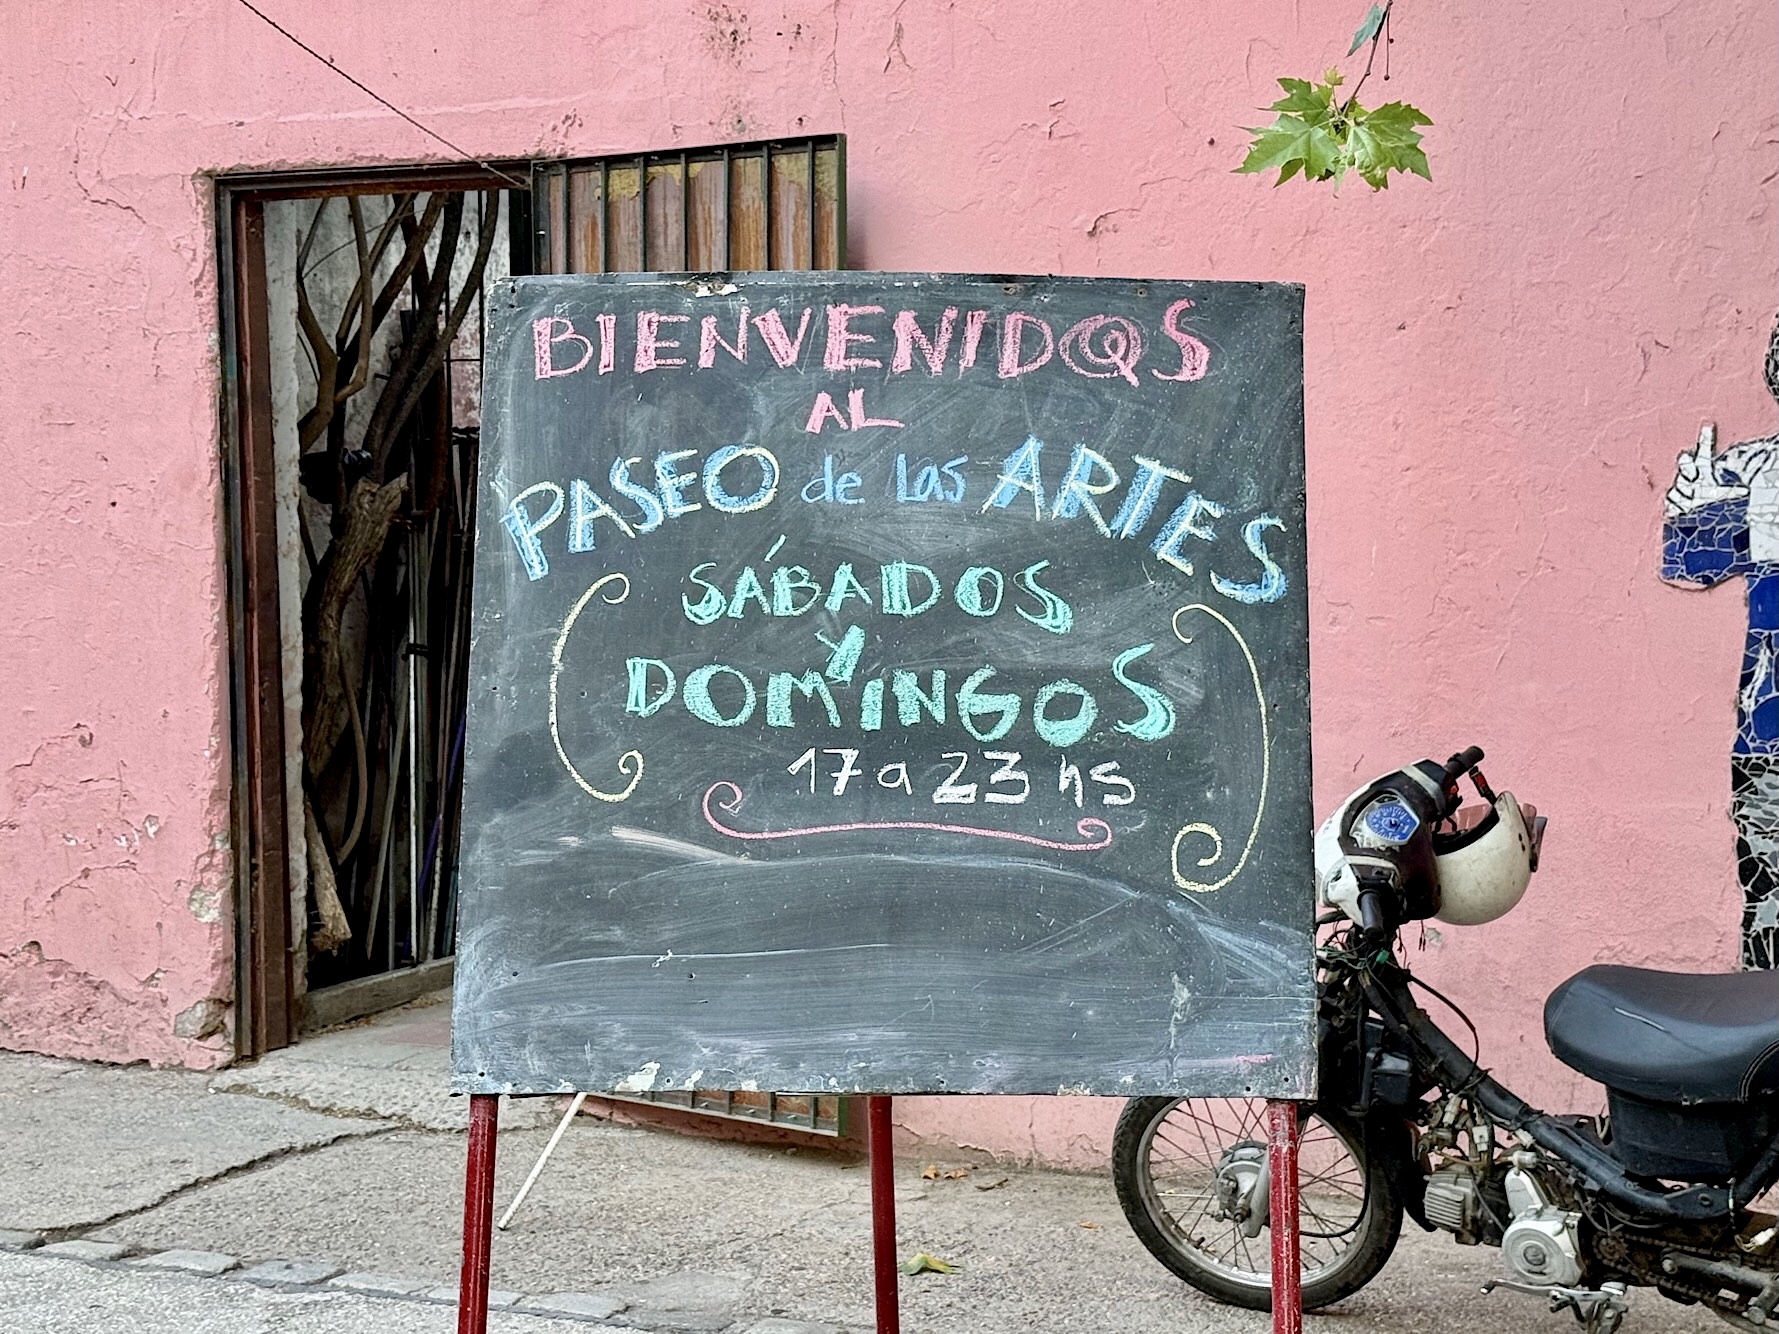 BIENVENIDOS
AL
PASEO de las ARTES
SÁBADOS
Y
DOMINGOS
17 a 23 hs